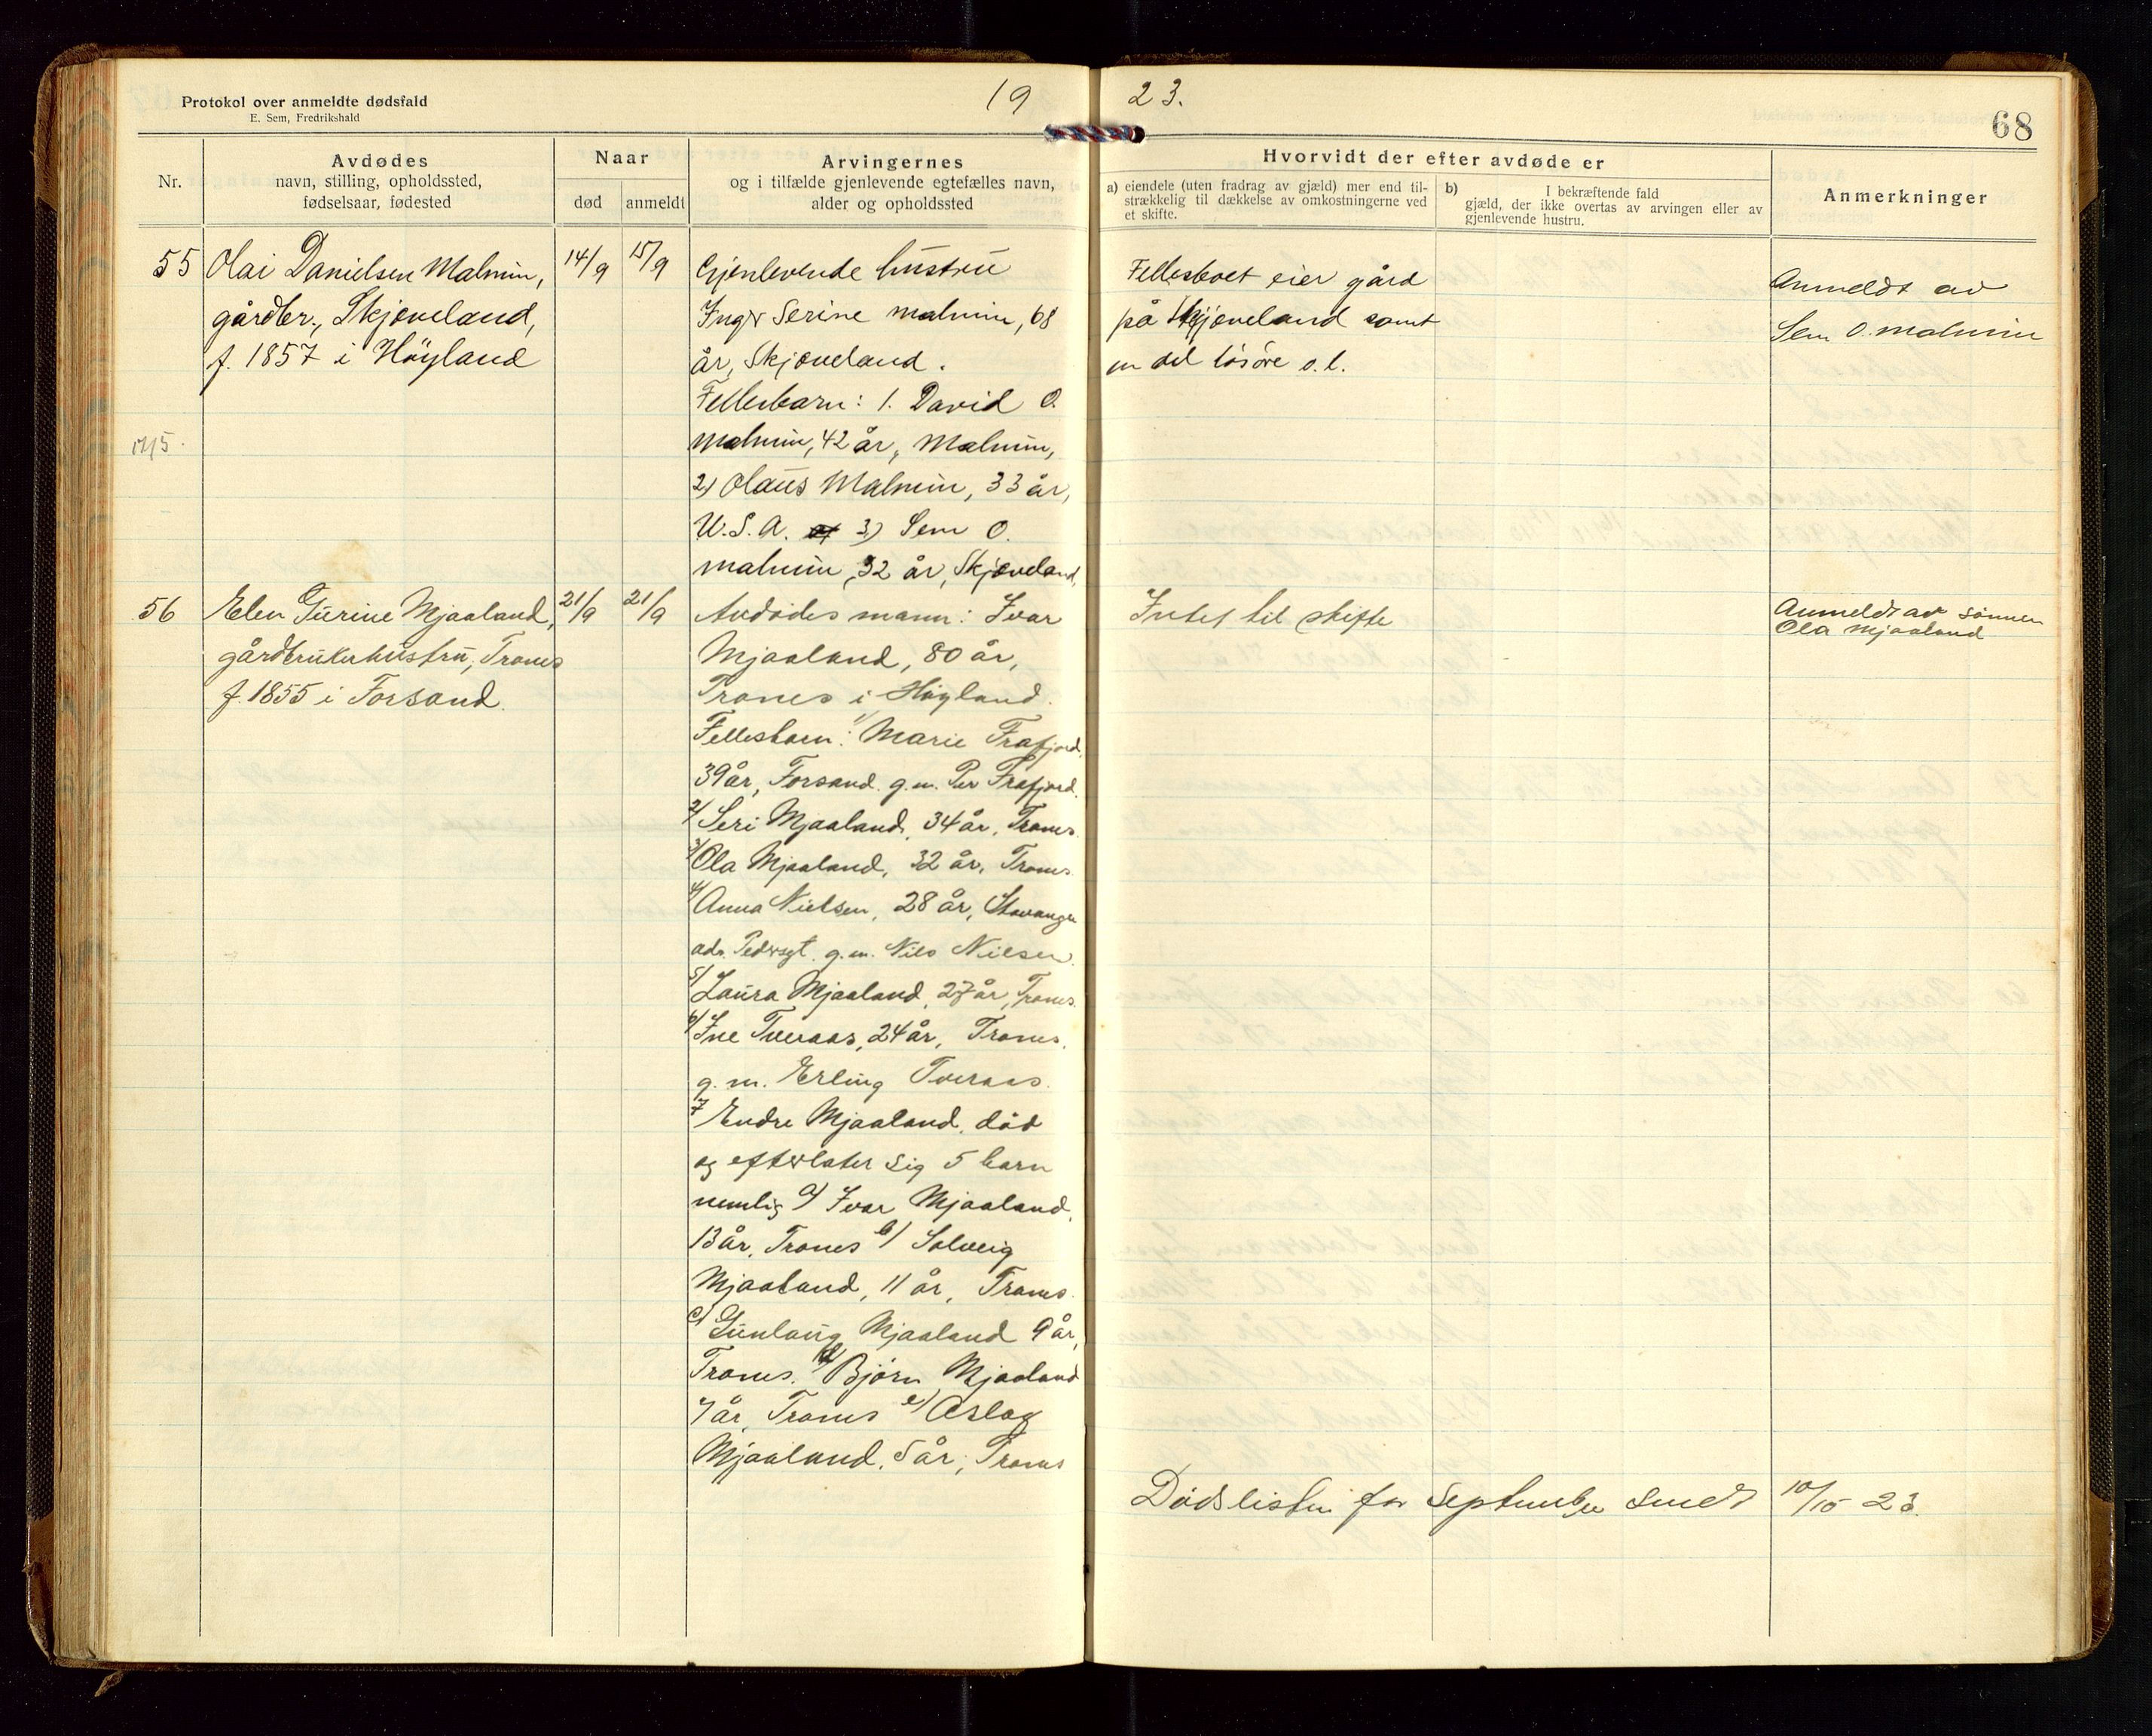 Protokol over anmeldte dødsfald
E. Sem, Fredrikshald
19
23.
68
Nr.
Avdødes
navn, stilling, opholdssted,
fødselsaar, fødested
Naar
død
anmeldt
Arvingernes
og i tilfælde gjenlevende egtefælles navn,
alder og opholdssted
Hvorvidt der efter avdøde er
a) eiendele (uten fradrag av gjæld) mer end til-
strækkelig til dækkelse av omkostningerne ved
et skifte.
b) I bekræftende fald
gjæld, der ikke overtas av arvingen eller av
gjenlevende hustru.
Anmerkninger
55
Olai Danielsen Malmin,
gårdbr., Skjæveland,
f. 1857 i Höyland
14/9
15/9
Gjenlevende hustru
Inger Serine Malmin, 68
år, Skjæveland.
Fellesbarn: 1. David O.
Malmin, 42 år, Malmin,
2) Olaus Malmin, 33 år,
U.S.A. 3) Sem O.
Malmin, 32 år, Skjæveland,
Fellesboet eier gård
på Skjæveland samt
en del løsøre o.l.
Anmeldt av
Sem O. Malmin
56
Elen Gurine Mjaaland,
gårdbrukerhustru, Trones
f. 1855 i Forsand.
21/9
21/9
Avdødes mann: Ivar
Mjaaland, 80 år,
Trones i Høyland.
Fellesbarn: 1/ Marie Frafjord,
39 år, Forsand. g.m. Per Frafjord.
2/ Seri Mjaaland, 34 år, Trones.
3/ Ola Mjaaland, 32 år, Trones.
4/ Anna Nielsen, 28 år, Stavanger
adr. Pedersgt. g.m. Nils Nielsen.
5/ Laura Mjaaland, 27 år, Trones.
6/ Ine Tveraas, 24 år, Trones.
g.m. Erling Tveraas.
7 Endre Mjaaland, død
og efterlater sig 5 barn
nemlig a/ Ivar Mjaaland,
13 år, Trones b/ Solveig
Mjaaland, 11 år, Trones
c/ Gunlaug Mjaaland 9 år,
Trones. d/ Bjørn Mjaaland
7 år, Trones e/ Aslag
Mjaaland, 5 år, Trones
Intet til skifte
Anmeldt av sønnen
Ola Mjaaland
Dødslisten for september sendt 10/10 23.